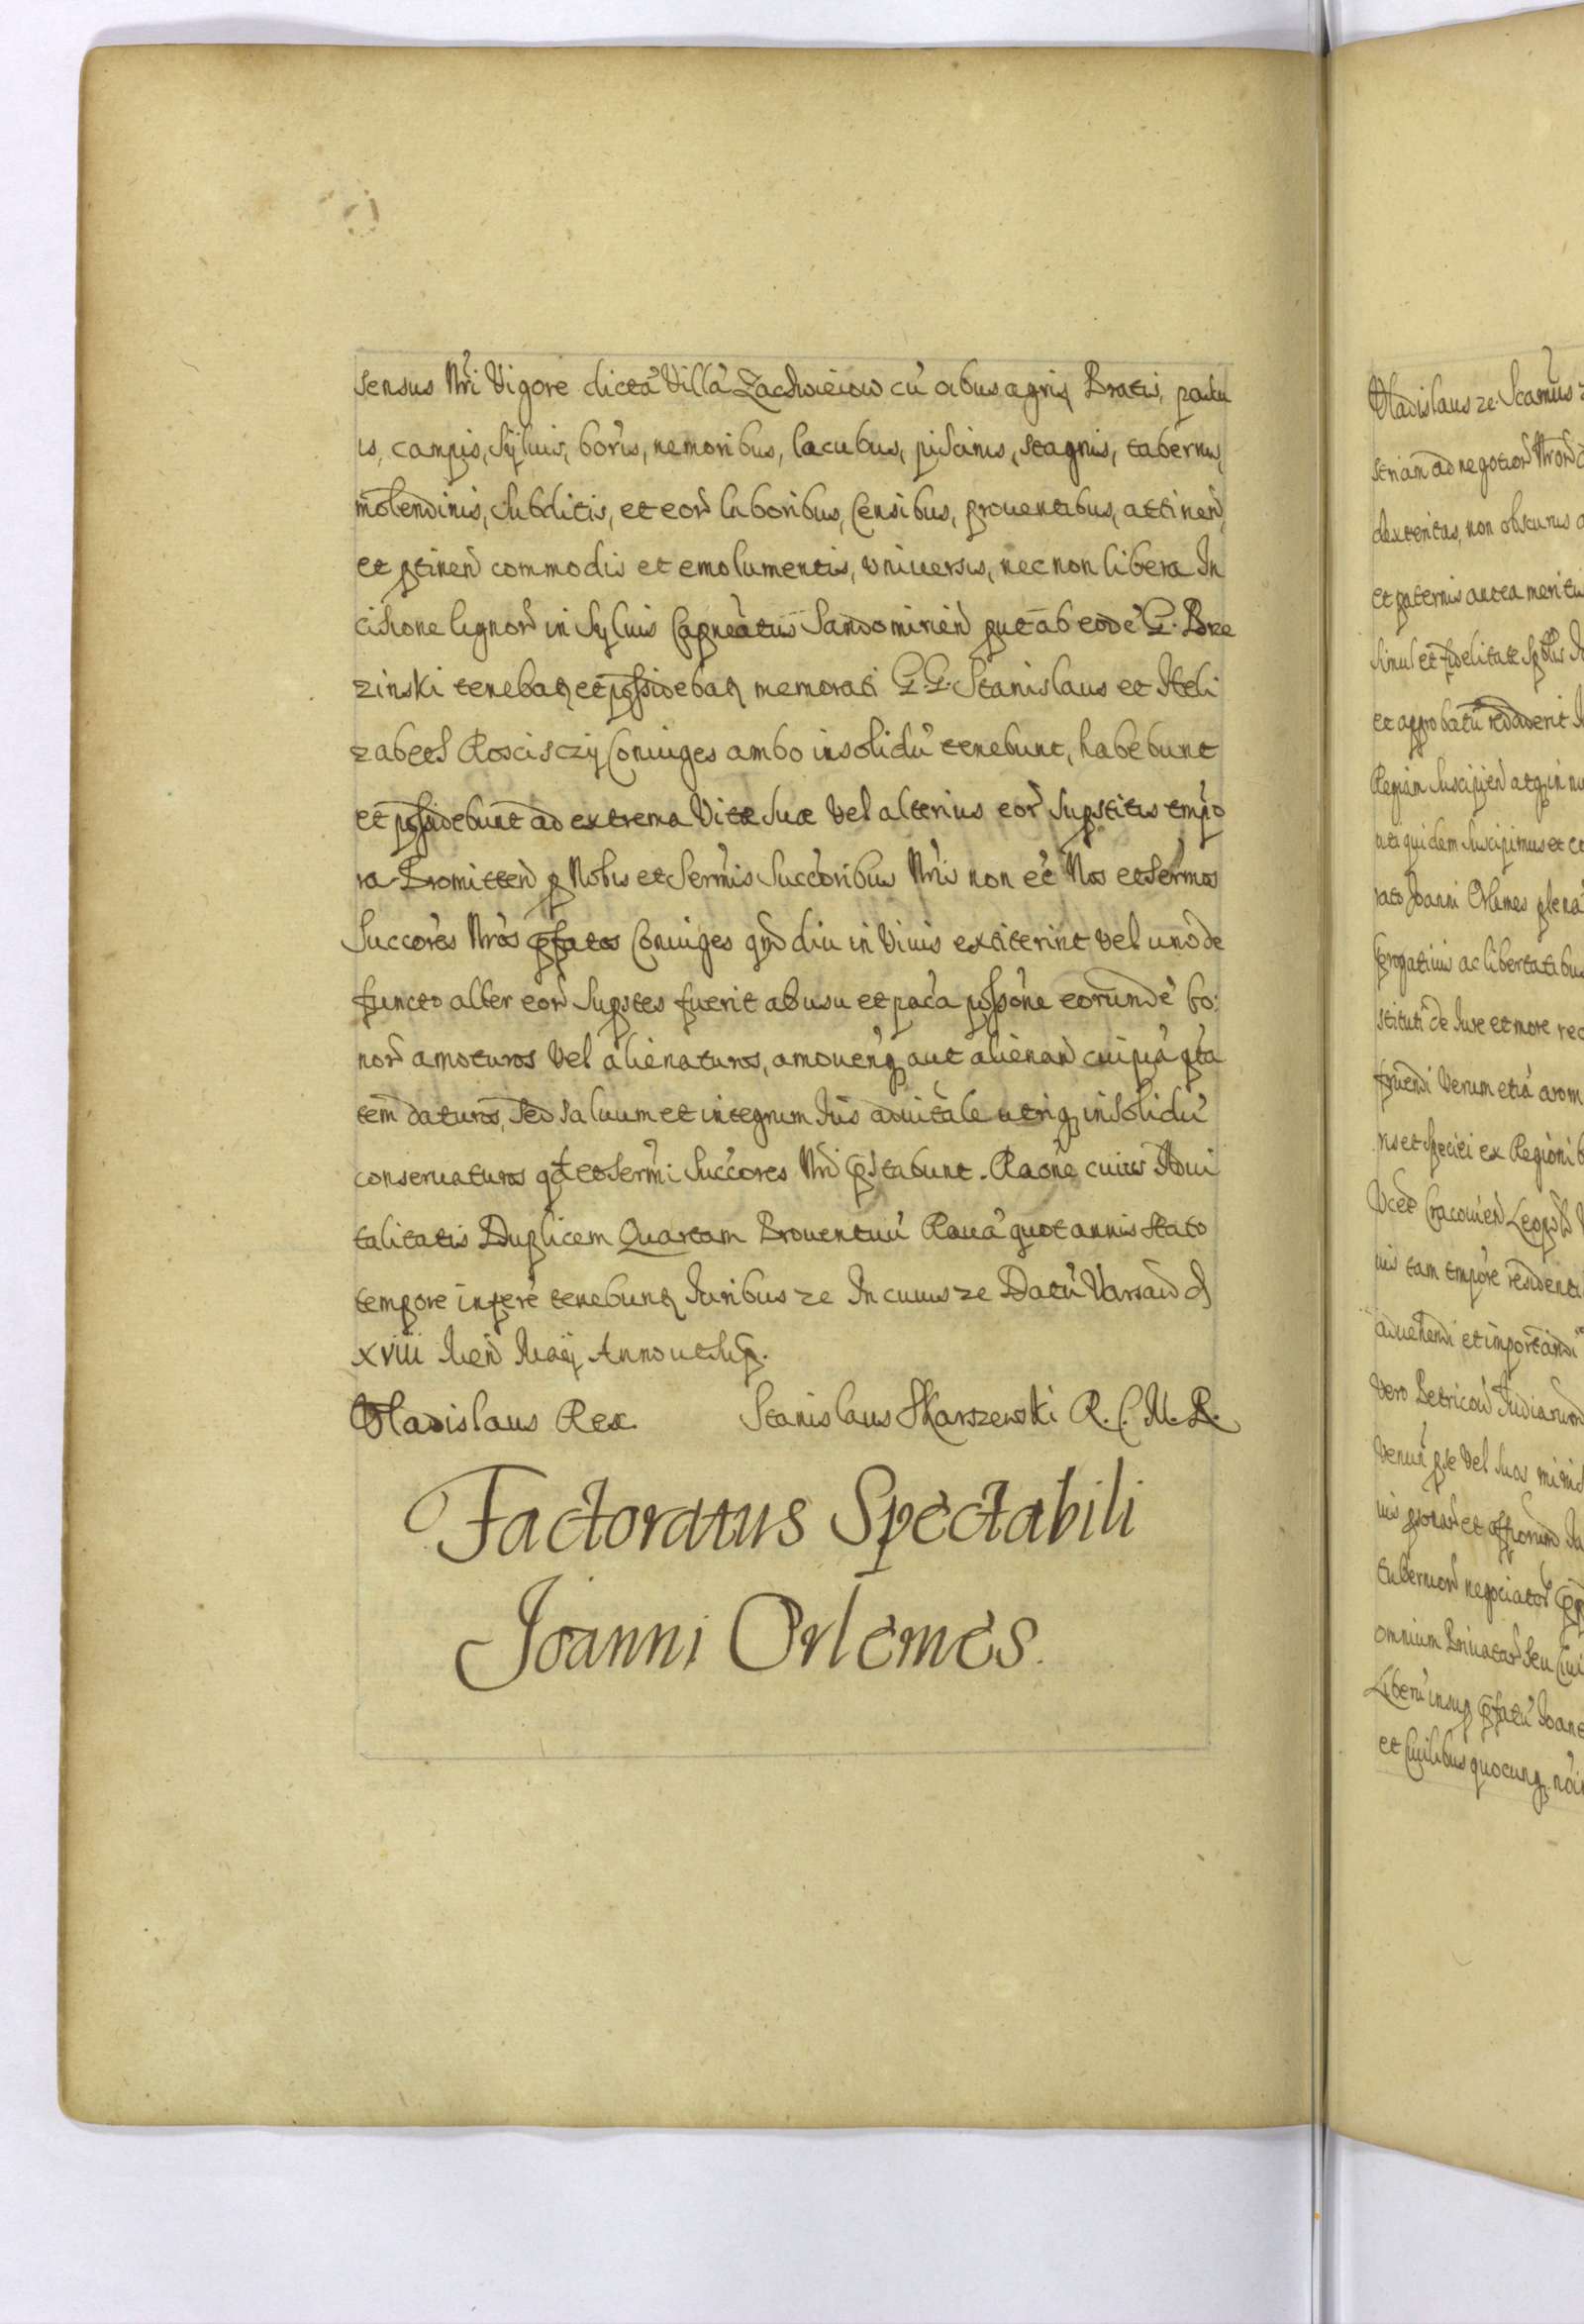 sensus Nri Vigore dictã Villã Zachwieiow cũ oibus agris Pratis, pascu
is, campis, Syluis, boris, nemoribus, lacubus, piscinis, stagnis, tabernis,
molendinis, Subditis, et eor laboribus, Censibus, prouentibus, attinen,
et ptinen commodis et emolumentis, vniuersis, nec non libera In
cisione lignor in Syluis Capneatus Sandomirien put ab eodẽ G. Brze
zinski tenebat et possidebat memorati G.G. Stanislaus et Heli
zabeth Roscisczy Coniuges ambo insolidũ tenebunt, habebunt
et possidebunt ad extrema Vitæ Suæ Vel alterius eor Supstitis tempo
ra Promitten p Nobis et Sermis Succoribus Nris non eẽ Nos et Sermos
Succores Nros pfatos Coniuges qmdiu in Viuis extiterint Vel uno de
functo alter eor Supstes fuerit ab usu et paca possone eorundẽ bo:
nor amoturos Vel alienaturos, amouenq aut alienan cuipiã ptã
tem daturos, sed saluum et integrum Ius aduitale utriq insolidũ
conseruaturos qd et Sermi Succores Nri pstabunt. Raone cuius Adui
talitatis Duplicem Quartam Prouentuũ Rauã quot annis stato
tempore inferre tenebunt Iuribus ze In cuius ze Datũ Varsau d
xviii Men Maij Anno ut sup.
Vladislaus Rex Stanislaus Skarszewski R. C. M. R.
Factoratus Spectabili
Joanni Orlemes.
Vladislaus ze. Scamus
striam ad negotior Nror
dexteritas, non obscurus
et paternis antea meritis
simul et fidelitate
et approbatũ reddiderit
Regiam Suscipien atq in
uti quidem Suscipimus et
rato Joanni Orlemes plena
rogatiuis ac libertatibus
stituti de Iure et more
fruendi Verum etiã arom
ris et Speciei ex Regioni
Craconien Leopol
nis tam tempore residenti
aduehendi et importandi
Vero Petricow
Venut p se Vel suos minis
omnium Priuatar seu Ciui
Liberũ insup pfatũ Joan
et Ciuilibus quocunq